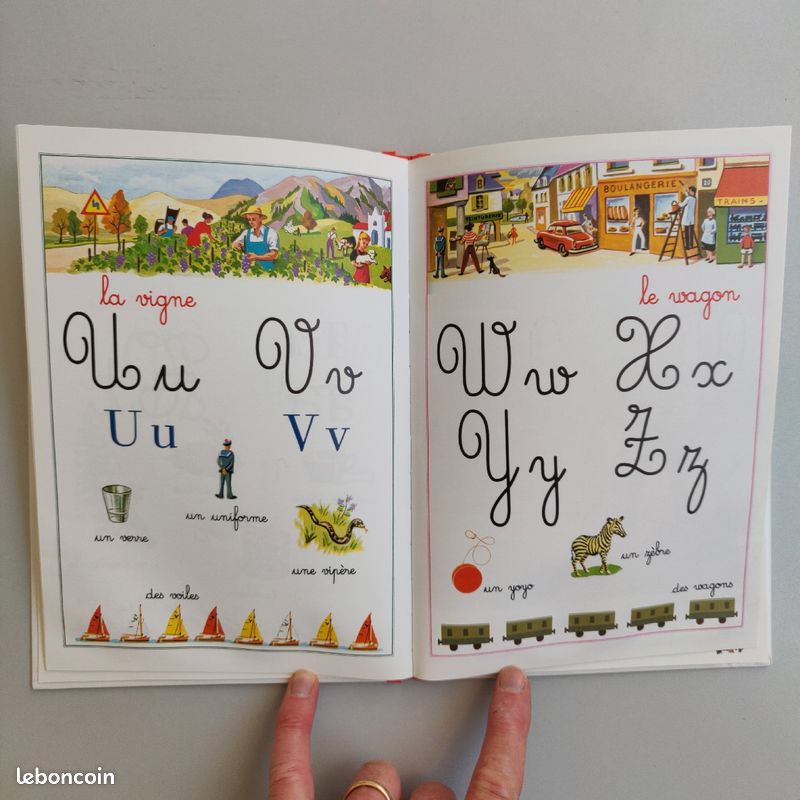 la vigne
U u V v
U u V v
un verre
un uniforme
une vipère
des voiles
TEINTURERIE
BOULANGERIE
20
TRAINS
le wagon
W w X x
Y y Z z
un yoyo
un zèbre
des wagons
leboncoin